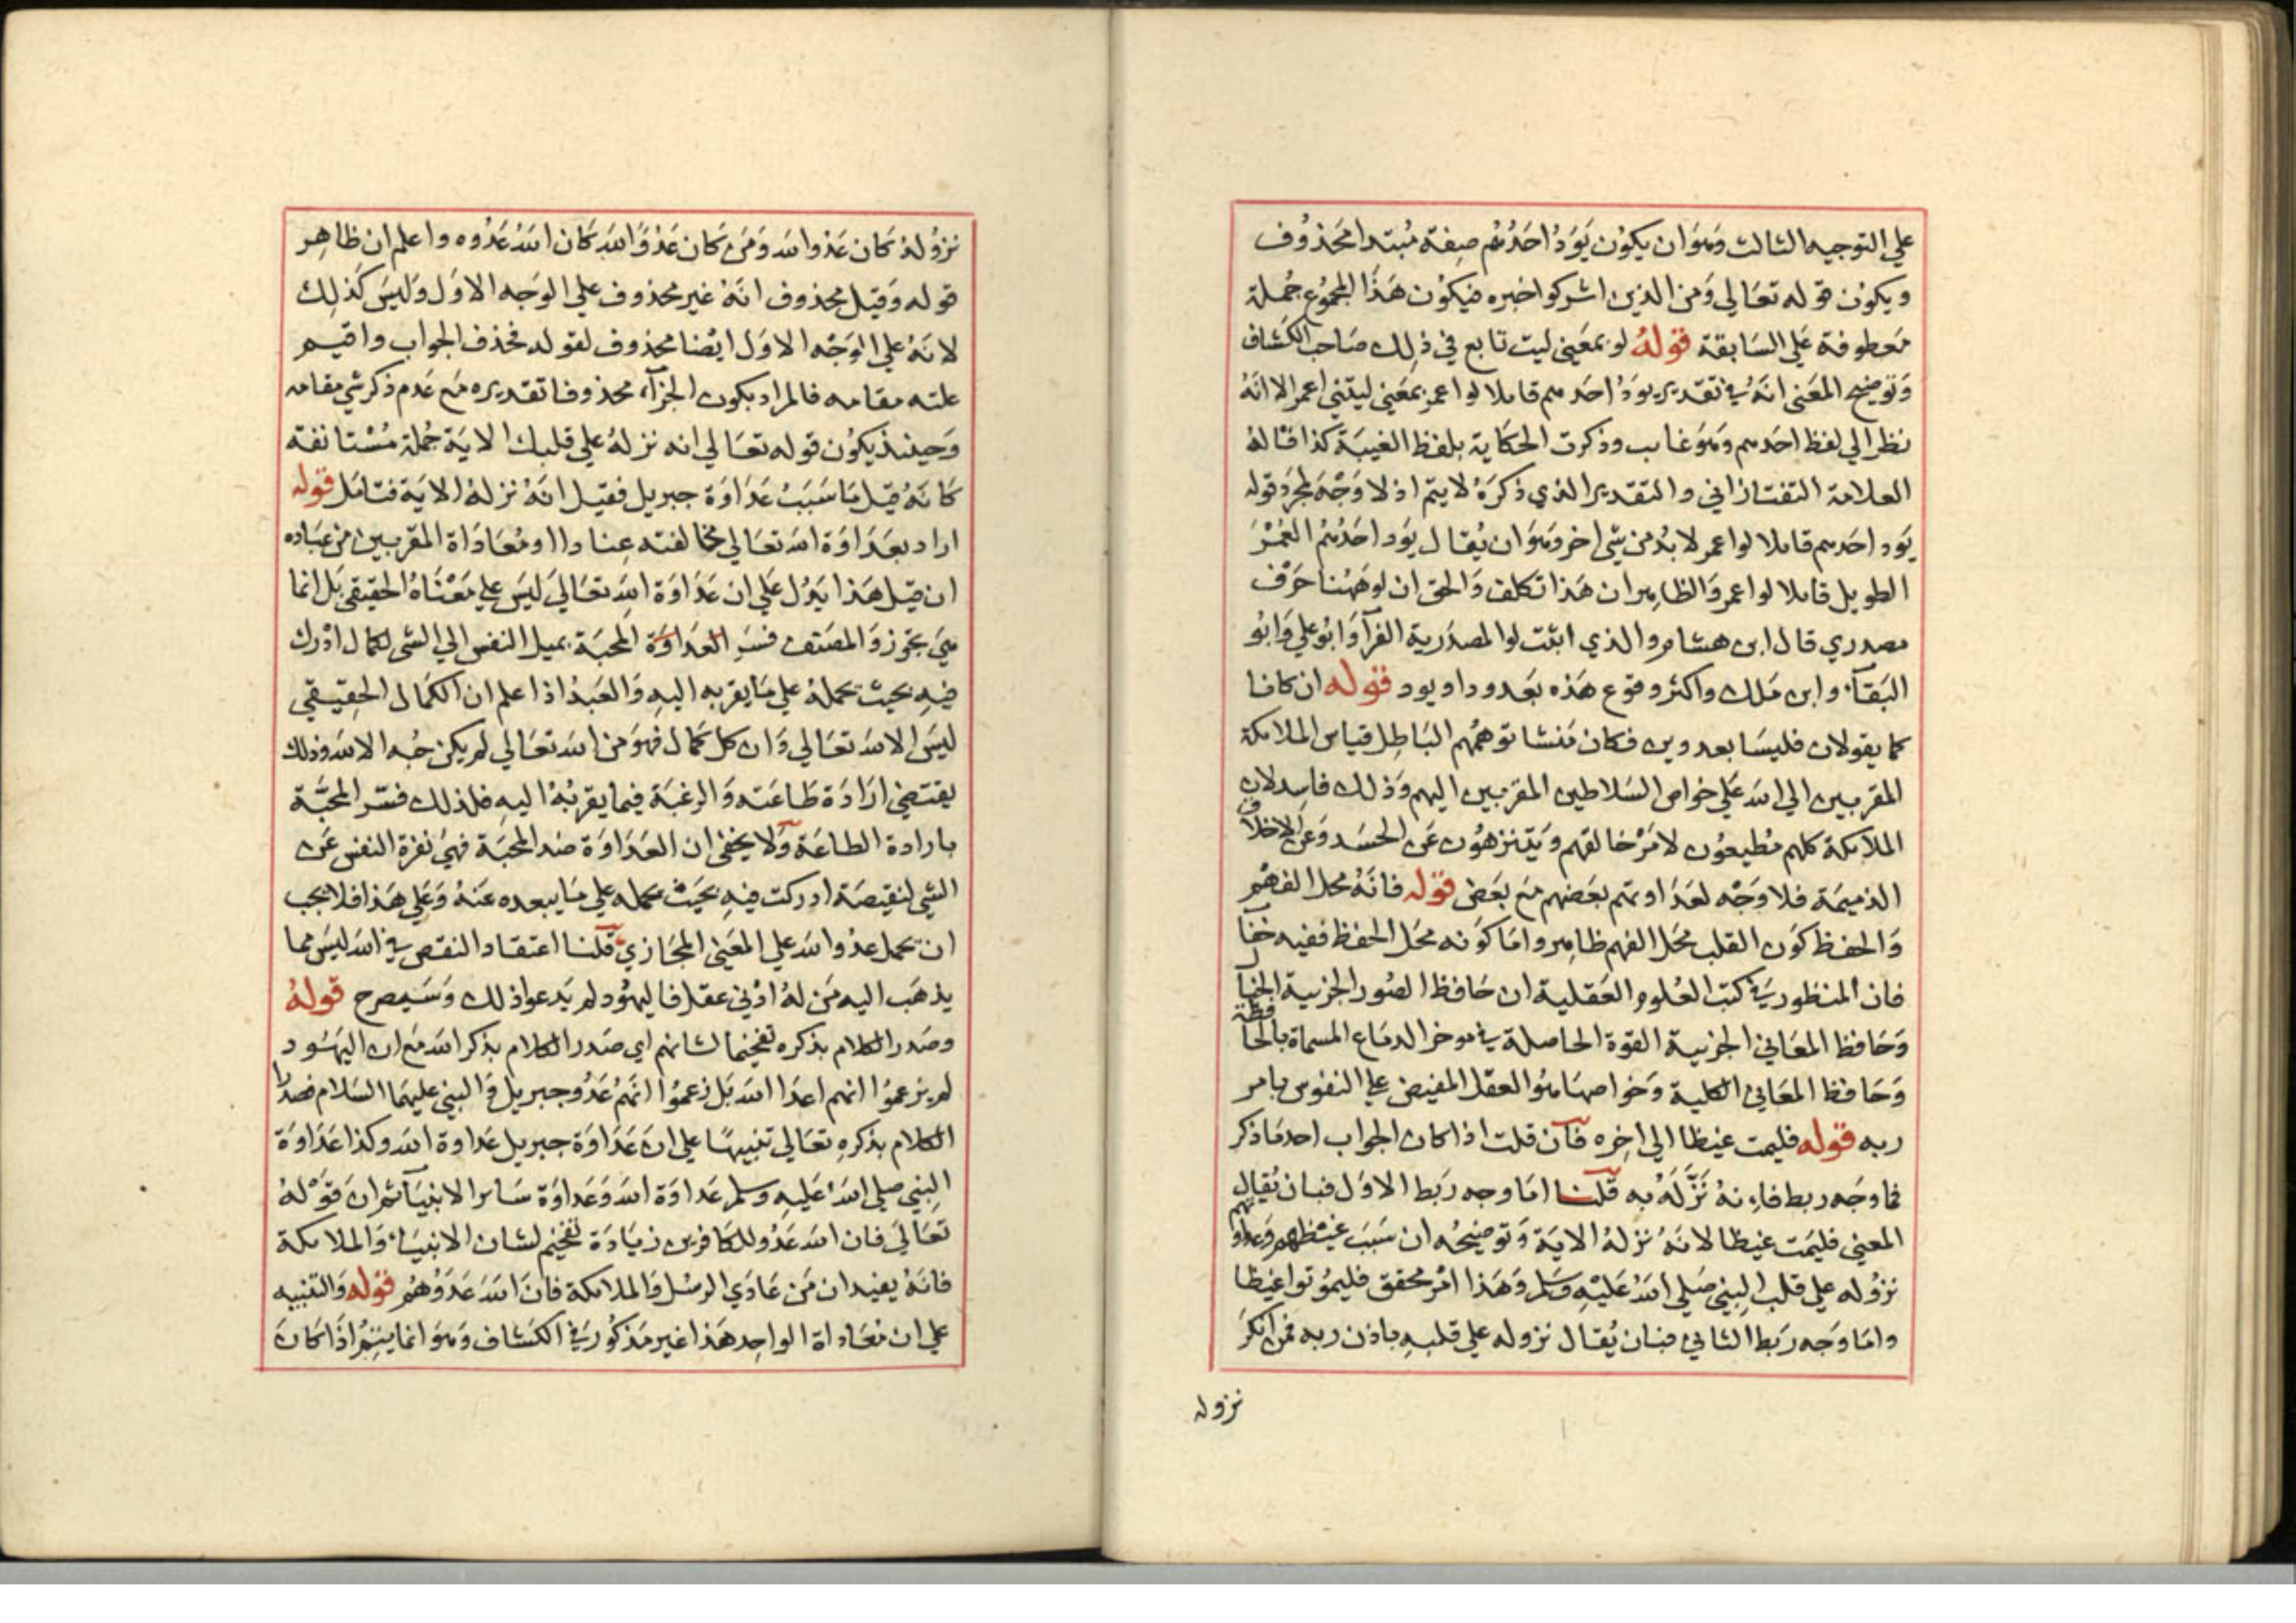 علي التوجيه الثالث وهو ان يكون يَوَدُّ احَدُهُم صِفة مُبتدا محَذوُف
ويكون قوله تعَالي وَمن الذين اشركوا خبره فيكوُن هَذَا المجموُع جُملة
مَعطوفة عَلي السَابقة قولهُ لو بمعَني ليت تابع في ذلك صَاحب الكشاف
وَتوضيح المعَني انهُ في تقديره يودُ احَدهم قايلا لو اعمر بمعَني ليتني اعمر الا انهُ
نظرا الي لفظ احَدهم وَهوَ غايب وذكرت الحكاية بلفظ الغيبَة كذا قالهُ
العلامة التفتازاني والتقدير الذي ذكرَهُ لا يتم اذ لا وَجْهَ لمجرد قوله
يَود احَدهم قايلا لو اعمر لا بدُ من شي اخر وَهوَ ان يُقال يَود احَدُهُم العُمْرَ
الطويل قايلا لو اعمر وَالظاهر ان هَذا تكلف وَالحق ان لو هَهُنا حَرْف
مصدري قال ابن هشام والذي اثبت لو المصدَرية الفرآ وَابوُ علي وَابوُ
البَقآء وابن مَلك واكثر وقوع هَذه بَعد ود او يود قوله ان كانا
كما يقولان فليسَا بعدوين فكان مَنشا توهمُهم البَاطِل قياس الملايكة
المقربين الي الله عَلي خواص السَلاطين المقربين اليهم وَذلك فاسِد لان
الملايكة كلهم مُطيعُون لامَرْ خالقهم وَيَتنزهُون عَن الحسَد وَعن الاخلاق
الذميمَة فلا وَجْه لعَدَاوتهم بعَضهم مَع بَعض قوله فانهُ محل الفهم
وَالحفظ كوَن القلب محَل الفهم ظاهر واما كوَنه محَل الحفظ ففيه خفآ
فان المنظور في كتب العُلوم العَقلية ان حَافظ الصُور الجزيية الخيال
وَحَافظ المعَاني الجزيية القوة الحَاصلة في موخر الدمَاغ المسماة بالحافظة
وَحَافظ المعَاني الكلية وَخواصهَا هوُ العقل المفيض علي النفوس بامر
ربه قوله فليمت غيظا الي اخِره فآن قلت اذا كان الجواب احدمَا ذكر
فما وَجَه ربط فاء نهُ نَزَّلَهُ به قلنا امَا وجه رَبط الاوَل فبان يُقال
المعني فليَمت غيظا لانهَ نزلهُ الايَة وَتوضيحُه ان سَبَبَ غيظهم وَعداوتهم
نزوُله علي قلب البني صَلي اللهُ عَليْهِ وَسَلم وَهَذا امْر محقق فليمُوتوا غيظا
وامَا وَجه رَبط الثاني فبان يُقال نزوله علي قلبهِ باذن ربه فمن انكرَ
نزوله
نزوُلهُ كان عَدوا لله وَمَن كان عَدوًا لله كان اللهُ عَدُوه واعلم ان ظاهِر
قوله وَقيل محذوف انهَ غير محذوف علي الوجه الاوَل وَليسَ كَذلِك
لانهُ علي الوَجْه الاوَل ايضا محذوف لقوله فحذف الجواب واقيم
علته مقامه فالمراد بكون الجزآء محذوفا تقديره مَع عَدم ذكر شي مقامه
وَحينئذ يكوُن قوله تعَالي انه نزلهُ علي قلبك الايَة جُملة مُسْتانفة
كانهُ قيل مَا سَبَبُ عَدَاوَة جبريل فقيل انهُ نزلهُ الايَة فتامَل قوله
اراد بعَدَاوَة الله تعَالي مخالفته عِنادا او مُعَادَاة المقربين من عبَاده
ان قيل هَذا يَدُل عَلي ان عَدَاوَة الله تعَاليَ ليَس علي مَعْناهُ الحقيقي بَل انما
هيَ تجَوز وَالمصَنف فسَر العَدَاوَة المحَبَة بميل النفس الي الشي لكمال ادْرك
فيهِ بحيث يحملهُ علي مَا يقربه اليهِ وَالعَبدُ اذا علم ان الكمَال الحِقيقي
ليسَ الا لله تعَالي وَان كل كمَال فهوَ من الله تعَالي لم يكن حُبه الا لله وذلك
يقتضي ارَادَة طاعَته وَالرغبَة فيما يقربُهْ اليهِ فلذلك فسَّر المحَبَّة
بارادة الطاعَة وَلا يخفي ان العَدَاوَة ضد المحَبَة فهيَ نفرَة النفس عَن
الشي لنقيصَة ادركت فيهِ بحَيث يحمله علي مَا يبعده عَنهُ وَعَلي هَذا فلا يجب
ان يحمل عدُوا لله علي المعَني المجَازي قلنا اعتقاد النقص في الله ليسَ مما
يذهَب اليه مَن لهُ ادْني عقل فاليهُود لم يَدعوا ذلك وَسَيصرح قولهُ
وصَدر الكلام بذكره تفخيما لشانهم اي صَدر الكلام بذكر الله مَع ان اليهَود
لم يزعموُا انهم اعدَا الله بَل زعموُا انهَمُ عَدُو جبريل وَالبني عليهمَا السَلام فصدر
الكلام بذكرِهِ تعَالي تنبيهًا علي ان عَدَاوَة جبريل عَداوة الله وكذا عَدَاوَة
البني صلي اللهُ عَليهِ وسلم عَداوَة الله وَعَداوَة سَاير الانبيَآ ثم ان قوَلهُ
تعَاليَ فان الله عَدُو للكافرين زيَادَة تفخيم لشان الانبيَاء وَالملايكة
فانهُ يفيد ان مَن عَادَي الرسُل وَالملايكة فانَ اللهَ عَدَوُهُم قوله وَالتنبيه
علي ان مُعَاداة الواحِد هَذا غير مَذكوُر في الكشاف وَهوَ انما يتِمُ اذا كانَ